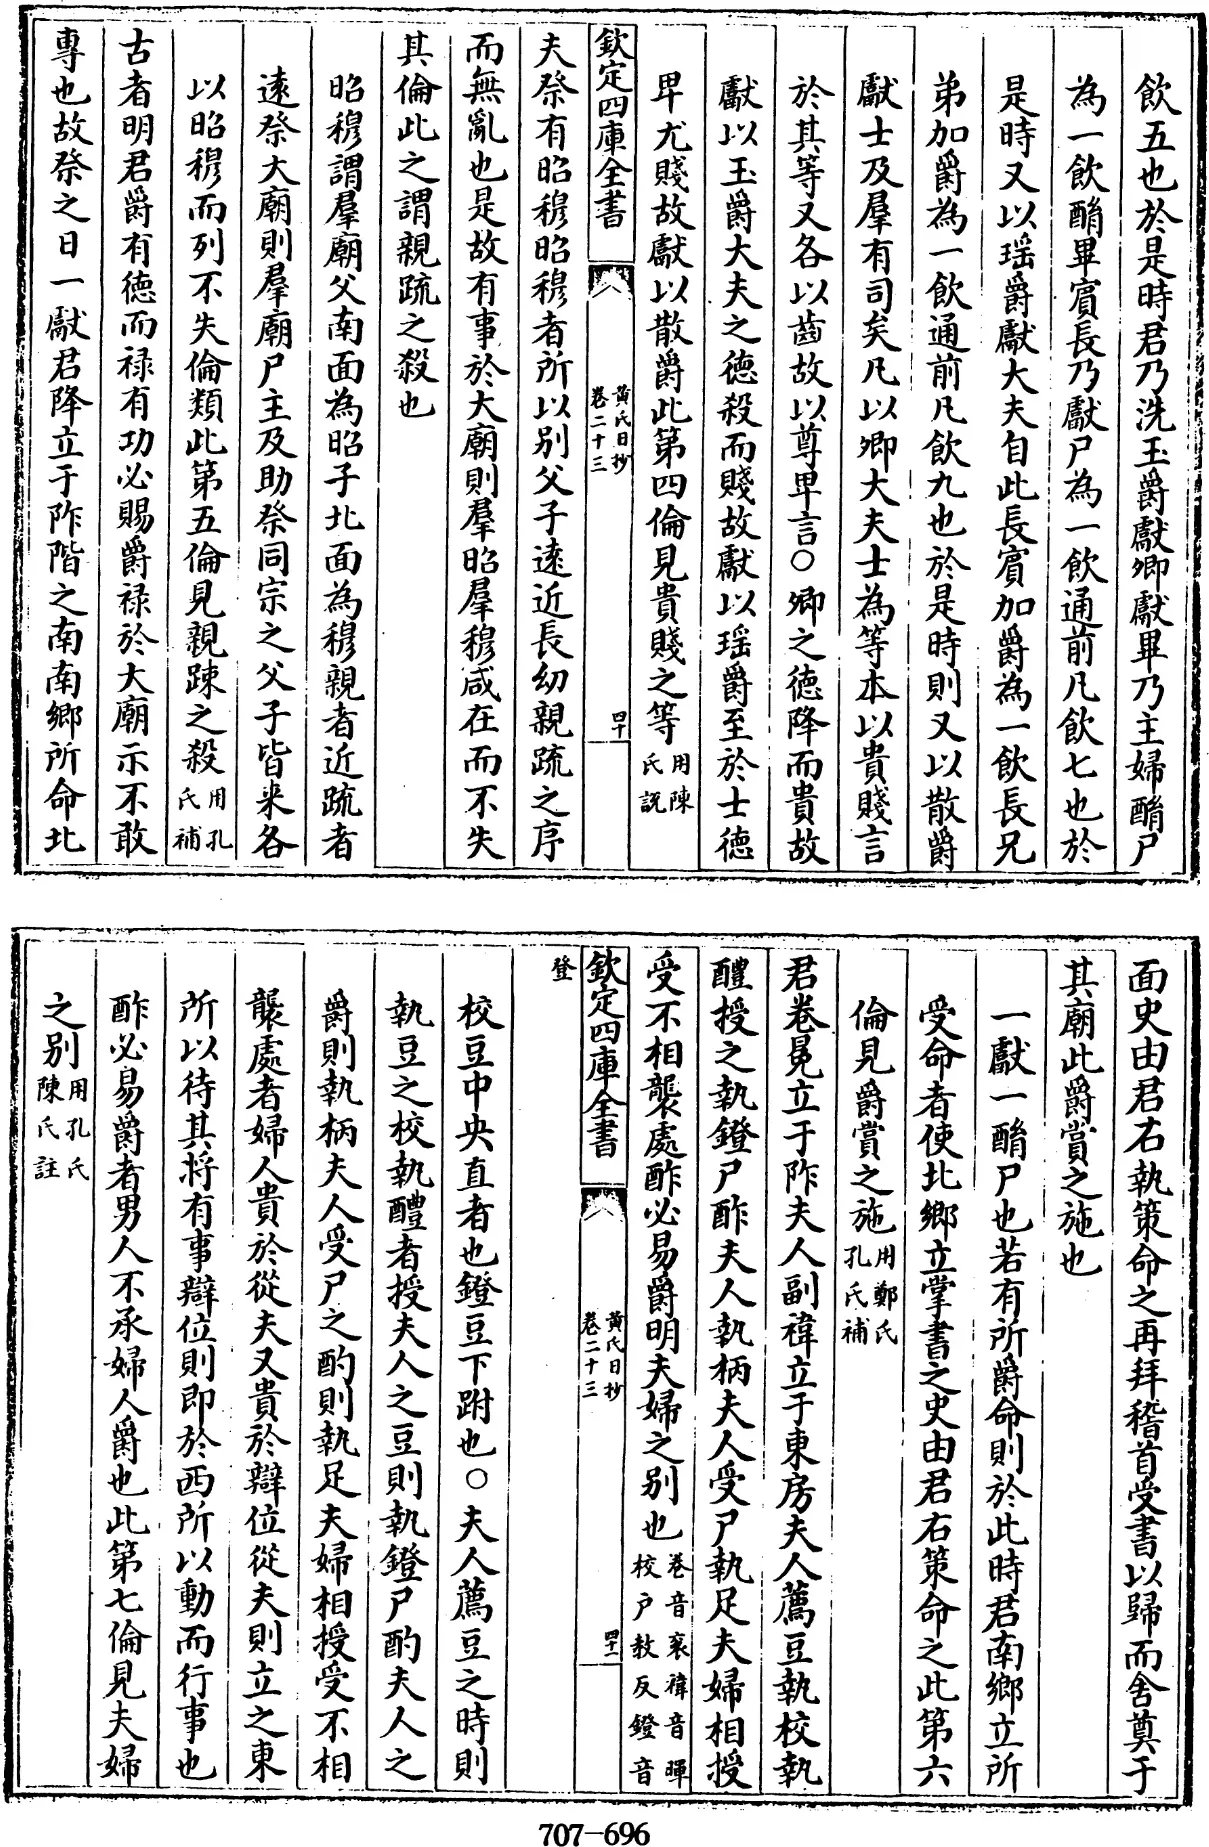 飲五也於是時君乃洗玉爵獻卿獻畢乃主婦酳尸
為一飲酳畢賓長乃獻尸為一飲通前凡飲七也於
是時又以瑶爵獻大夫自此長賓加爵為一飲長兄
弟加爵為一飲通前凡飲九也於是時則又以散爵
獻士及羣有司矣凡以卿大夫士為等本以貴賤言
於其等又各以齒故以尊卑言○卿之德降而貴故
獻以玉爵大夫之德殺而賤故獻以瑶爵至於士德
卑尤賤故獻以散爵此第四倫見貴賤之等用陳氏說
欽定四庫全書
黄氏日抄
卷二十三
四十
夫祭有昭穆昭穆者所以别父子逺近長幼親疏之序
而無亂也是故有事於大廟則羣昭羣穆咸在而不失
其倫此之謂親疏之殺也
昭穆謂羣廟父南面為昭子北面為穆親者近疏者
逺祭大廟則羣廟尸主及助祭同宗之父子皆来各
以昭穆而列不失倫類此第五倫見親踈之殺用孔氏補
古者明君爵有徳而禄有功必賜爵禄於大廟示不敢
專也故祭之日一獻君降立于阼階之南南鄉所命北
面史由君右執策命之再拜稽首受書以歸而舍奠于
其廟此爵賞之施也
一獻一酳尸也若有所爵命則於此時君南鄉立所
受命者使北鄉立掌書之史由君右策命之此第六
倫見爵賞之施用鄭氏孔氏補
君卷冕立于阼夫人副褘立于東房夫人薦豆執校執
醴授之執鐙尸酢夫人執柄夫人受尸執足夫婦相授
受不相襲處酢必易爵明夫婦之别也卷音衮褘音暉校户教反鐙音
登
欽定四庫全書
黄氏日抄
卷二十三
四十一
校豆中央直者也鐙豆下跗也○夫人薦豆之時則
執豆之校執醴者授夫人之豆則執鐙尸酌夫人之
爵則執柄夫人受尸之酌則執足夫婦相授受不相
襲處者婦人貴於從夫又貴於辯位從夫則立之東
所以待其将有事辯位則即於西所以動而行事也
酢必易爵者男人不承婦人爵也此第七倫見夫婦
之别用孔氏陳氏註
707-696